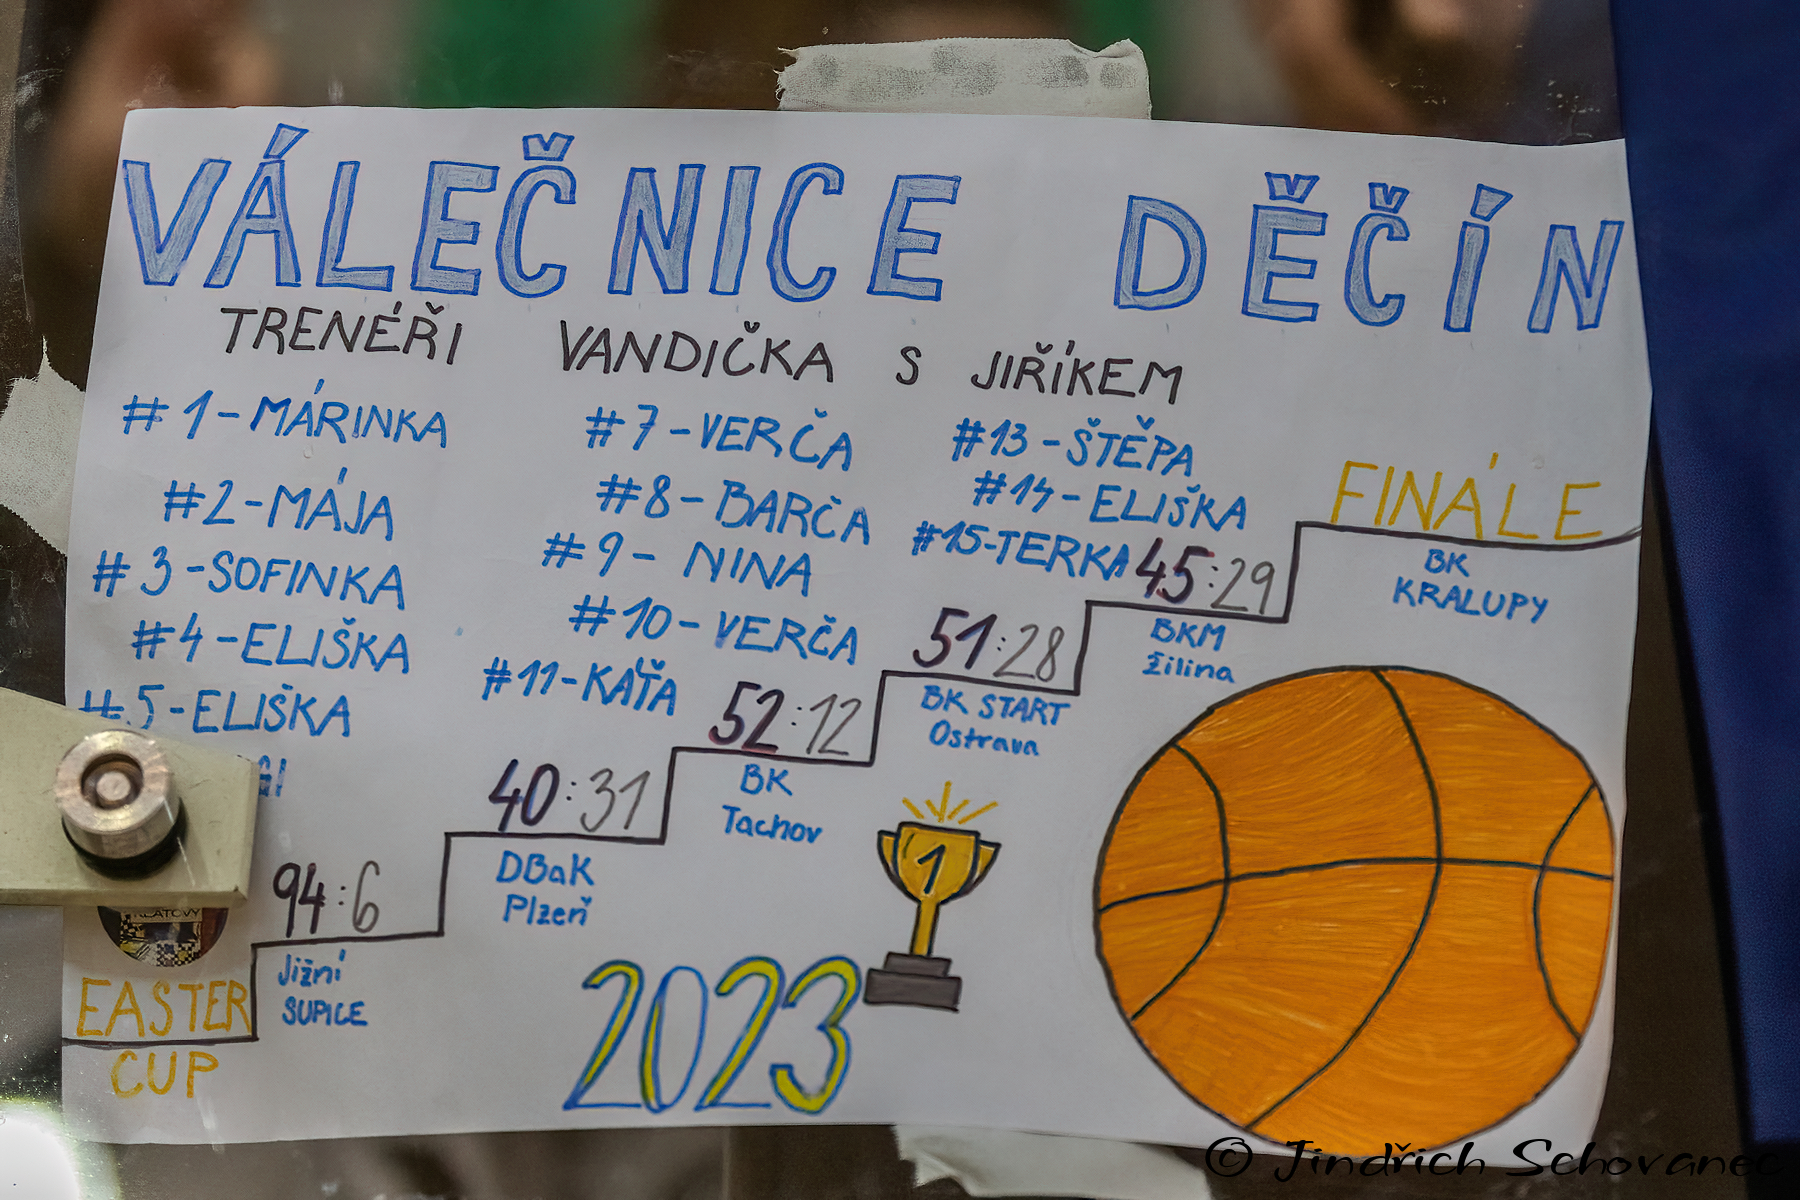 VÁLEČNICE DĚČÍN
TRENÉŘI VANDIČKA S JIŘÍKEM
#1-MÁRINKA
#2-MÁJA
#3-SOFINKA
#4-ELIŠKA
#5-ELIŠKA
GI
#7-VERČA
#8-BARČA
#9-NINA
#10-VERČA
#11-KAŤA
#13-ŠTĚPA
#14-ELIŠKA
#15-TERKA
EASTER
CUP
94:6
Jižní
SUPICE
40:31
DBaK
Plzeň
52:12
BK
Tachov
51:28
BK START
Ostrava
45:29
BKM
Žilina
FINÁLE
BK
KRALUPY
1
2023
KLATOVY
© Jindřich Schovanec